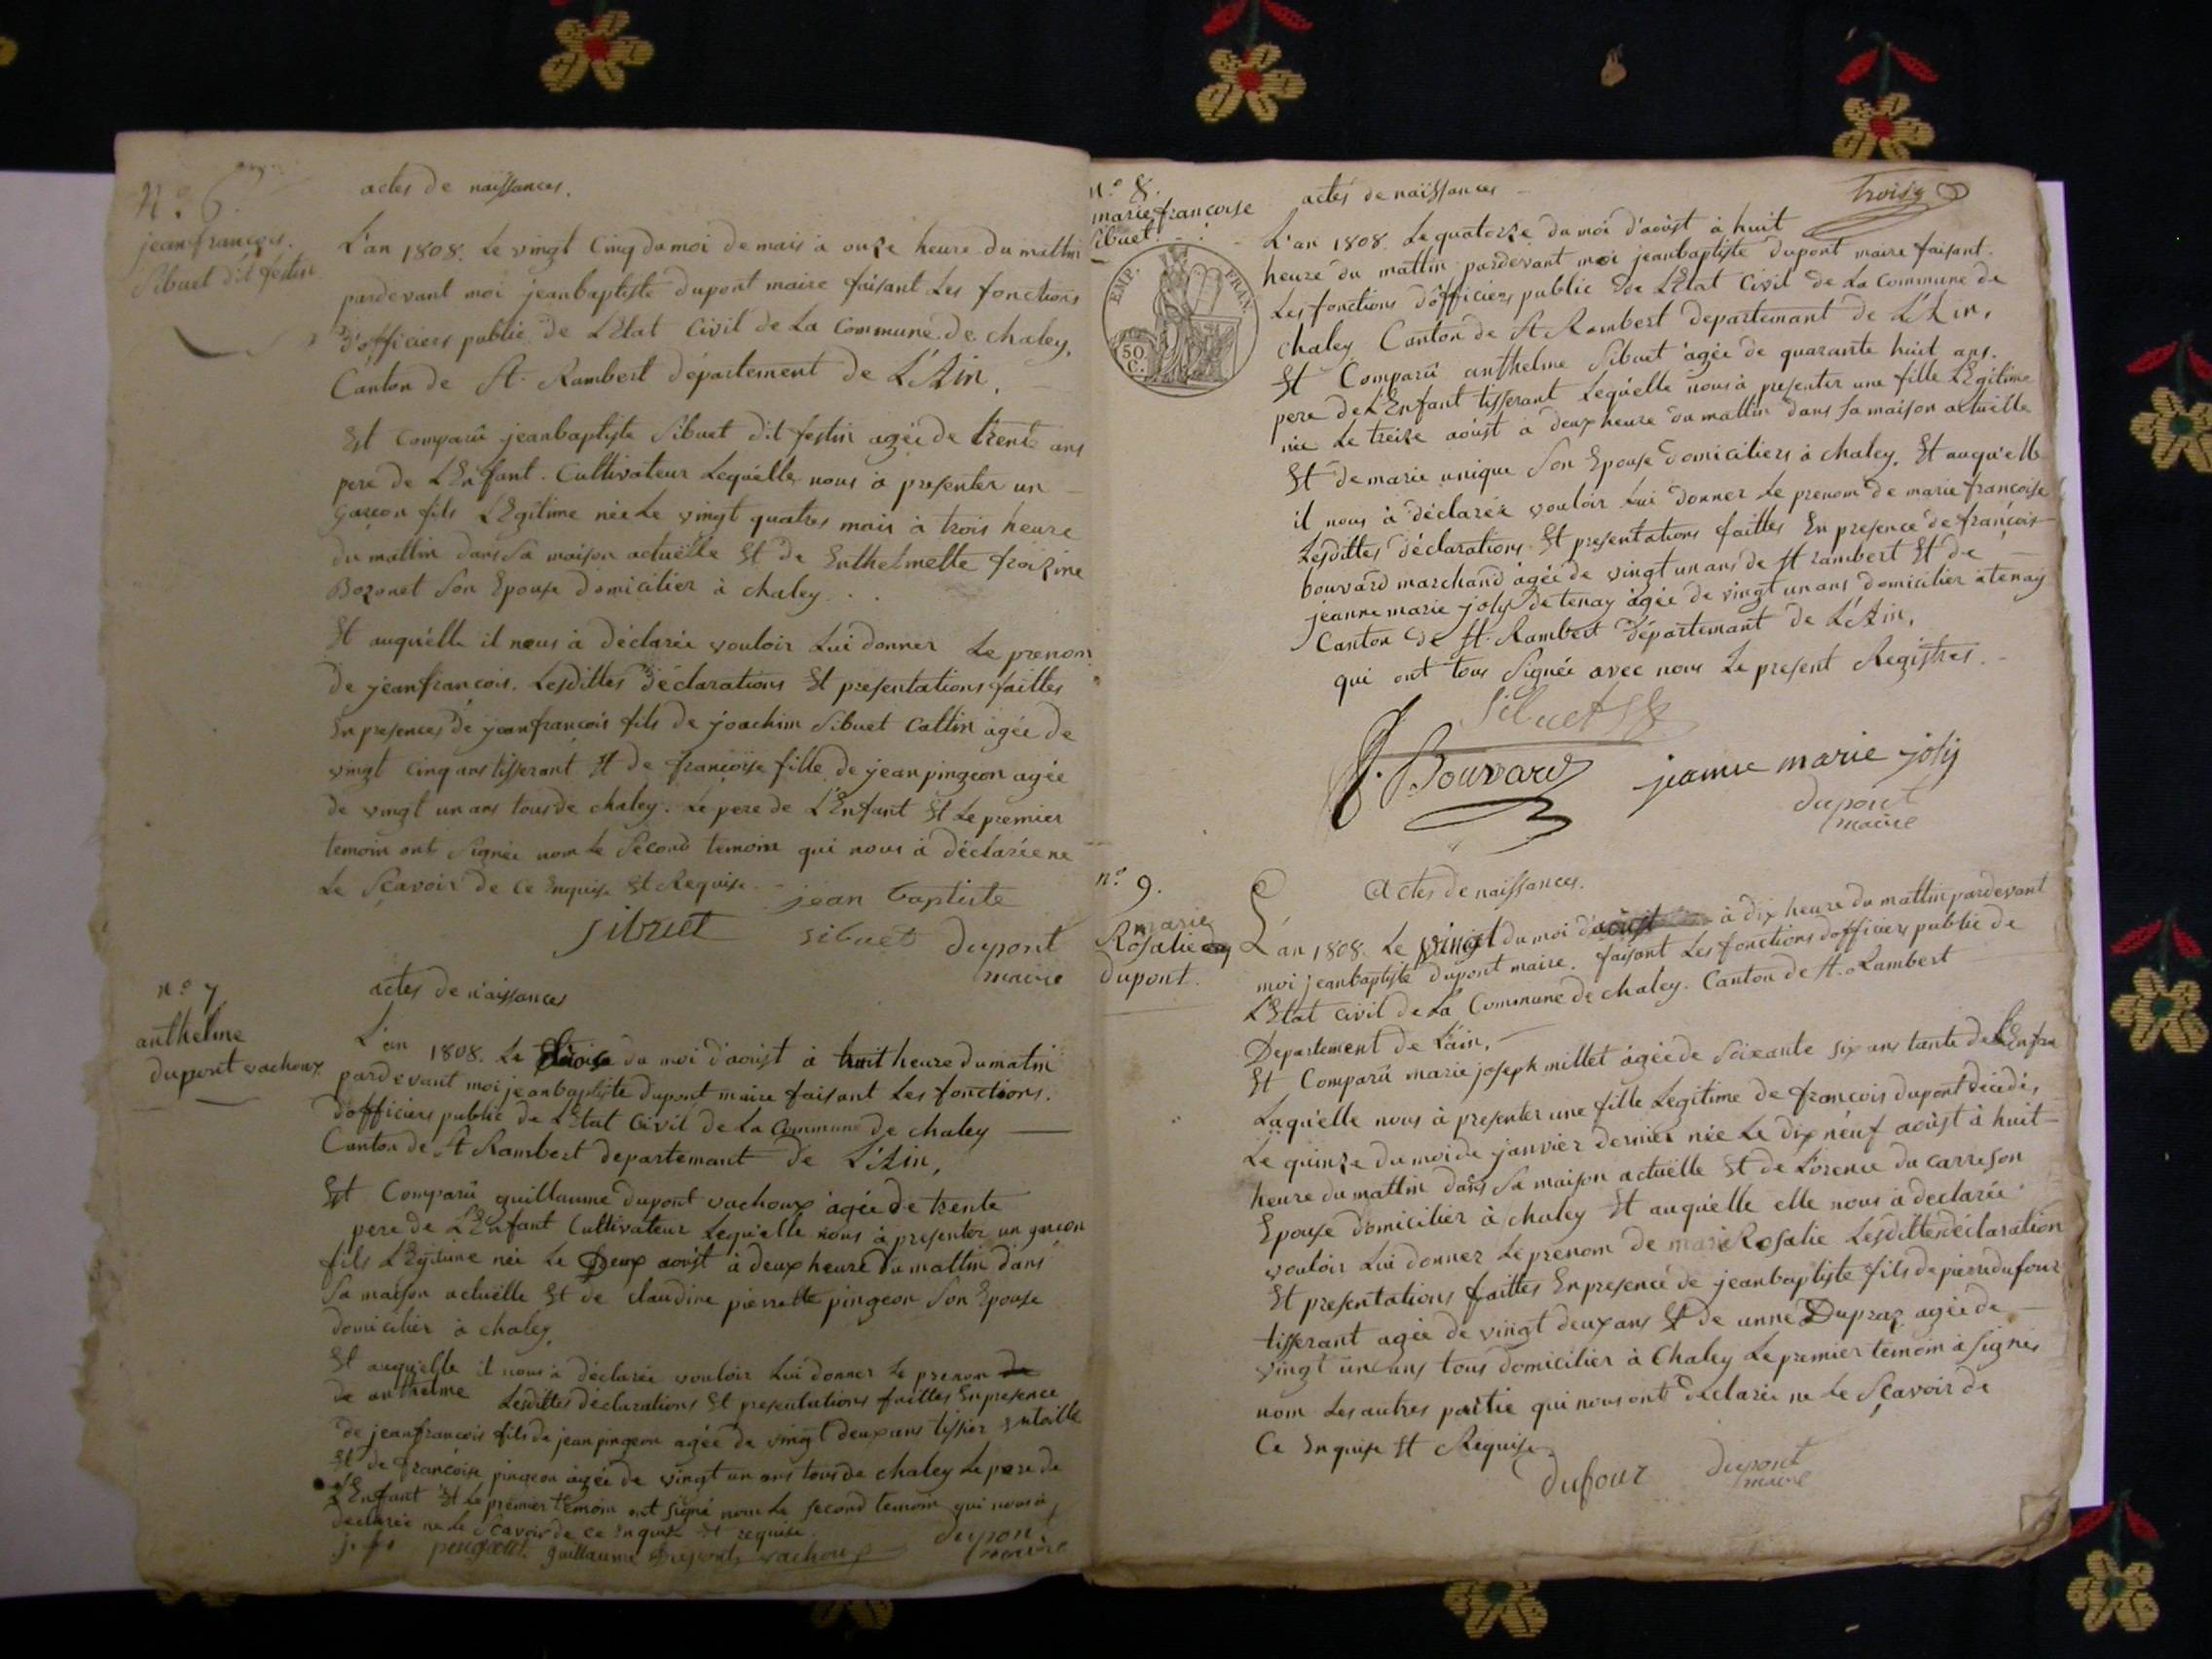 N.o 6.
jean françois.
Sibuet dit festin
actes de naissances.
L'an 1808. Le vingt cinq du moi de mais à onze heure du mattin
pardevant moi jeanbaptiste dupont maire faisant Les fonctions
d'officiers public de L'Etat Civil de La Commune de chaley,
Canton de St. Rambert département de L'Ain.
Est Comparû jeanbaptiste Sibuet dit festin agée de trente ans
pere de L'Enfant. Cultivateur Lequélle nous à presenter un
garçon fils LEgitime née Le vingt quatres mais à trois heure
du mattin dans Sa maison actuëlle Et de Enthelmette froizine
Bozonet Son Epouse domicilier à chaley. . .
Et auquélle il nous à déclarée vouloir Lui donner Le prenom
de jeanfrançois. Lesdittes déclarations Et presentations faittes
En presences de jeanfrançois fils de joachim Sibuet Cattin agée de
vingt cinq ans tisserant Et de françoise fille de jean pingeon agée
de vingt un ans tous de chaley. Le pere de L'Enfant Et Le premier
temoin ont Signée nom le Second temoin qui nous à déclarée ne
Le Sçavoir de Ce Enquise Et Requise.
jean baptiste
sibuet sibuet dupont
maire
n.o 7
anthelme
dupont vachoux
actes de naissances
L'an 1808. Le du moi d'aoust à huit heure du matin
pardevant moi jeanbaptiste dupont maire faisant Les fonctions.
d'officiers public de L'Etat Civil de La Commune de chaley
Canton de St Rambert departemant de L'Ain,
Est Comparû guillaume dupont vachoux àgée de trente
pere de L'Enfant Cultivateur Lequ'elle nous à presenter un garçon
fils LEgitime née Le Deux aoust à deux heure du mattin dans
Sa maison actuëlle Et de claudine pierrette pingeon Son Epouse
domicilier à chaley
Et auqu'elle il nous à déclarée vouloir Lui donner Le prenom de
de anthelme Lesdittes déclarations Et presentations faittes En presence
de jeanfrancois fils de jean pingeon agée de vingt deux ans tissier entoille
Et de françoise pingeon àgée de vingt un ans tous de chaley Le pere de
L'Enfant Et Le premier temoin ont signé nom Le second temoin qui nous à
declarée ne Le Sçavoir de Ce Enquise Et requise.
guillaume Dupont vachoux dupont
maire
n.o 8.
marie françoise
Sibuet.
EMP. FRAN.
50 C.
troisg
actes de naissances
L'an 1808. Le quatorze du moi d'aoust à huit
heure du mattin pardevant moi jeanbaptiste dupont maire faisant.
Les fonctions d'officiers public de L'Etat Civil de La Commune de
Chaley Canton de St Rambert departemant de L'Ain,
Et Comparû anthelme Sibuet àgée de quarante huit ans.
pere de L'Enfant tisserant Lequélle nous à presenter une fille LEgitime
née Le treize aoust à deux heure du mattin dans sa maison actuëlle
Et de marie unique Son Epouse domiciliers à chaley. Et auqu'elle
il nous à déclarée vouloir Lui donner Le prenom de marie françoise
Lesdittes déclarations Et presentations faittes En presence de françois
bouvard marchand àgée de vingt un ans de St rambert Et de
jeanne marie joly de tenay àgée de vingt un ans domicilier à tenay
Canton de St. Rambert Département de L'Ain.
qui ont tous Signée avec nous Le present Registres.
Sibuet
Bouvard jeanne marie joly
dupont
maire
n.o 9.
marie
Rosalie
dupont.
Actes de naissances.
L'an 1808. Le vingt du moi d'aoust à dix heure du mattin pardevant
moi jeanbaptiste dupont maire. faisant Les fonctions d'officiers public de
L'Etat Civil de La Commune de chaley. Canton de St. Rambert
Departement de L'ain.
Et Comparû marie joseph millet àgée de Soixante six ans tante de L'Enfan
Laqu'elle nous à presenter une fille Legitime de françois dupont décédés
Le quinze du moi de janvier dernier née Le dix neuf aoust à huit
heure du mattin dans Sa maison actuëlle Et de Lorence du carreson
Epouse domicilier à chaley Et auquélle elle nous à declarée
vouloir Lui donner Le prenom de marie Rosalie Lesdittes déclaration
Et presentations faittes En presence de jeanbaptiste fils de pierre dufour
tisserant agée de vingt deux ans Et de anne Dupraz agée de
vingt un ans tous domicilier à Chaley Le premier temoin à signés
nom Les autres partie qui nous ont declarée ne Le Sçavoir de
Ce Enquise Et Requise.
dufour dupont
maire